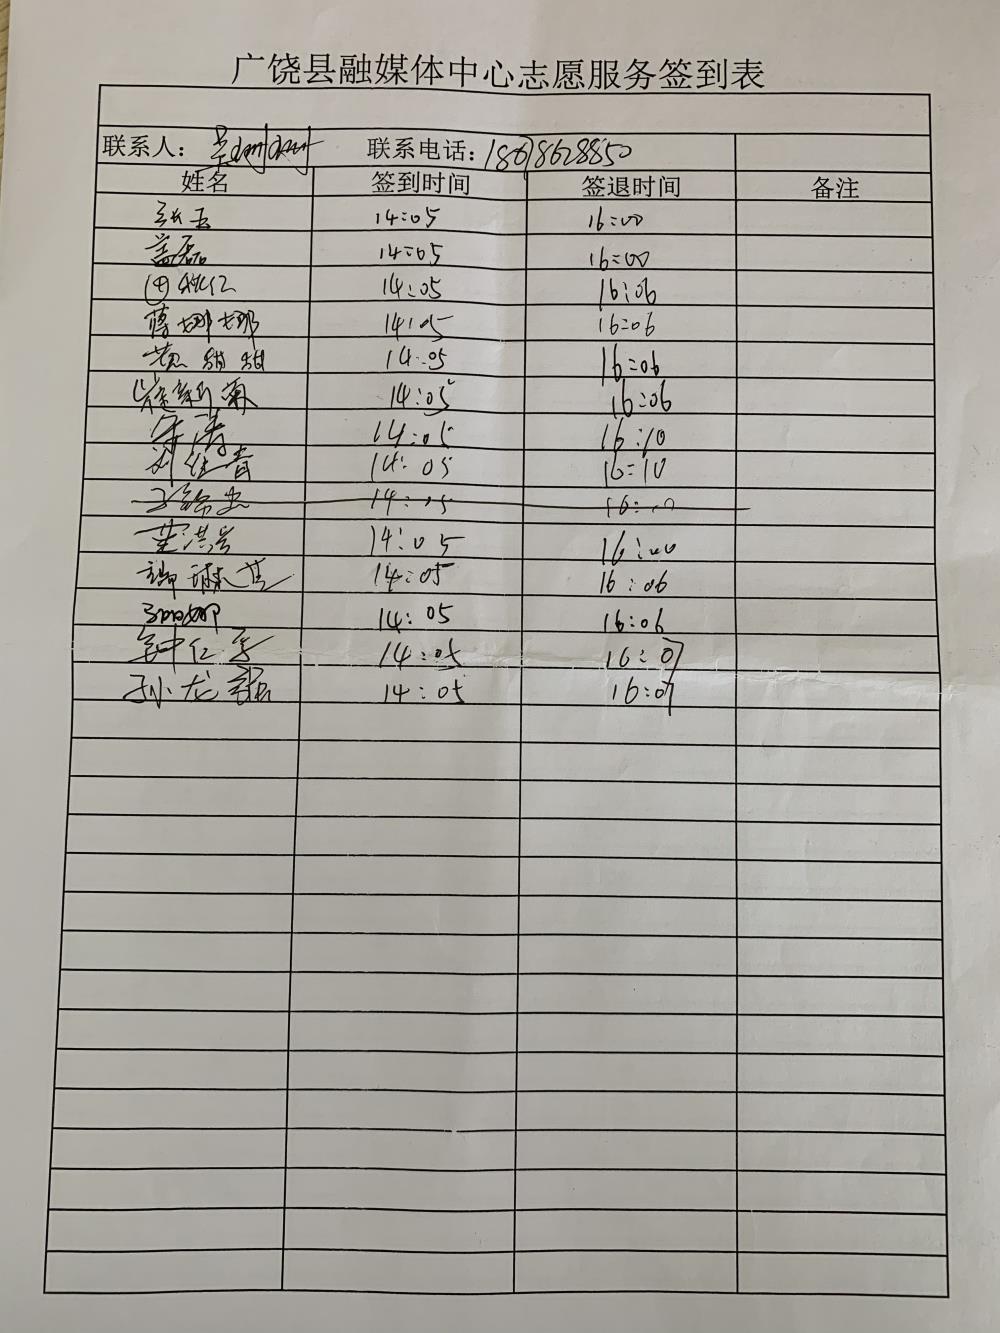 广饶县融媒体中心志愿服务签到表
联系人： 联系电话：18678628850
姓名 签到时间 签退时间 备注
张玉 14:05 16:00
盖磊 14:05 16:00
田 14:05 16:06
蒋娜娜 14:05 16:06
黄甜甜 14:05 16:06
崔新菊 14:05 16:06
李涛 14:05 16:10
刘佳青 14:05 16:10
14:05
14:05 16:00
14:05 16:06
14:05 16:06
钟仁 14:05 16:07
孙龙 14:05 16:07